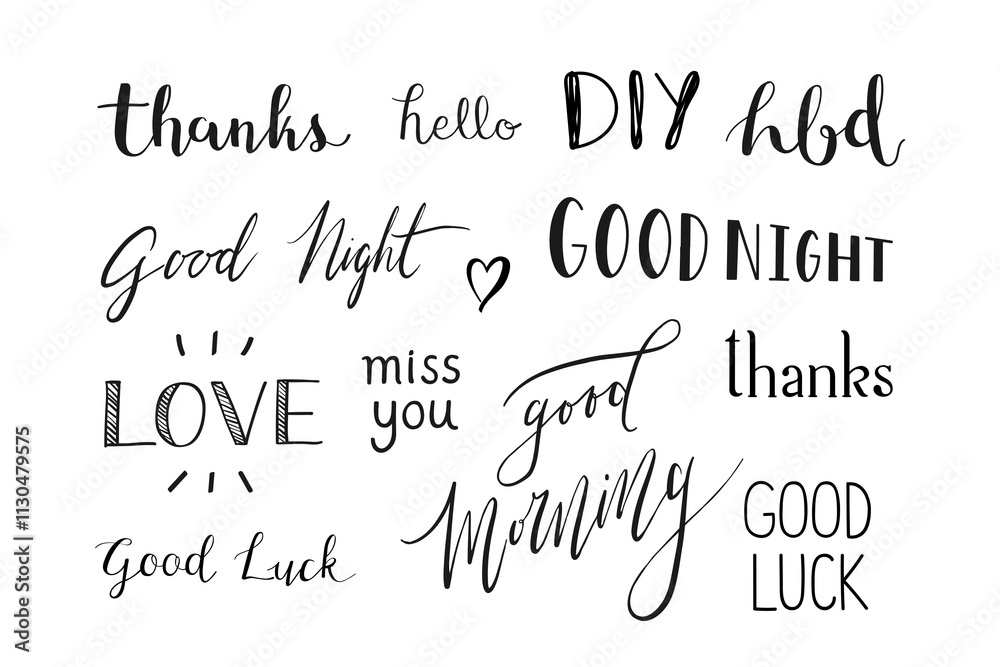 thanks hello DIY hbd
Good Night GOOD NIGHT
LOVE
miss
you
good
Morning
thanks
Good Luck
GOOD
LUCK
Adobe Stock | #1130479575